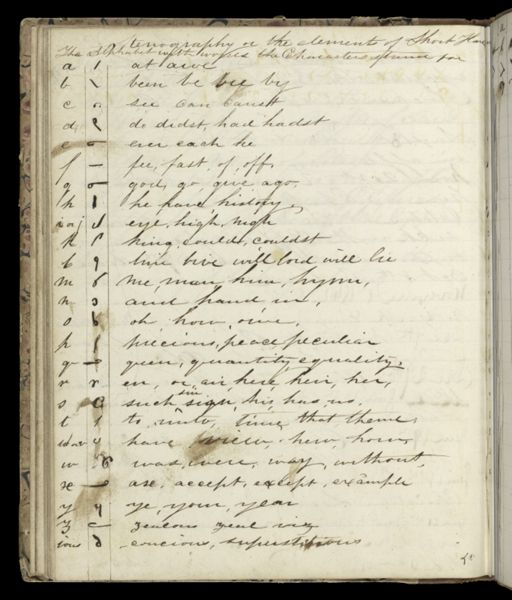 Stenography or the element of Short Hand
The Alphabet with words the Characters stand for
a at
b been be bee by
c see can canst
d do didst, had hadst
e ever each he
f fee, fast, of, off,
g god, go, give ago,
h he have history,
i or j eye, high, nigh
k king, could, couldst
l will lord will lie
m me man him, hymn,
n and hand in,
o oh, how, owe,
p precious, peace, peculiar
q queen, quantity equality,
r er, or, air here, heir, her,
s such sign, his has us.
sin
t to, unto, time, that them,
u or v have view, hew, how
w was, were, way, without,
x ax, accept, except, example
y ye, your, year
z zeal
ious concious, superstitious